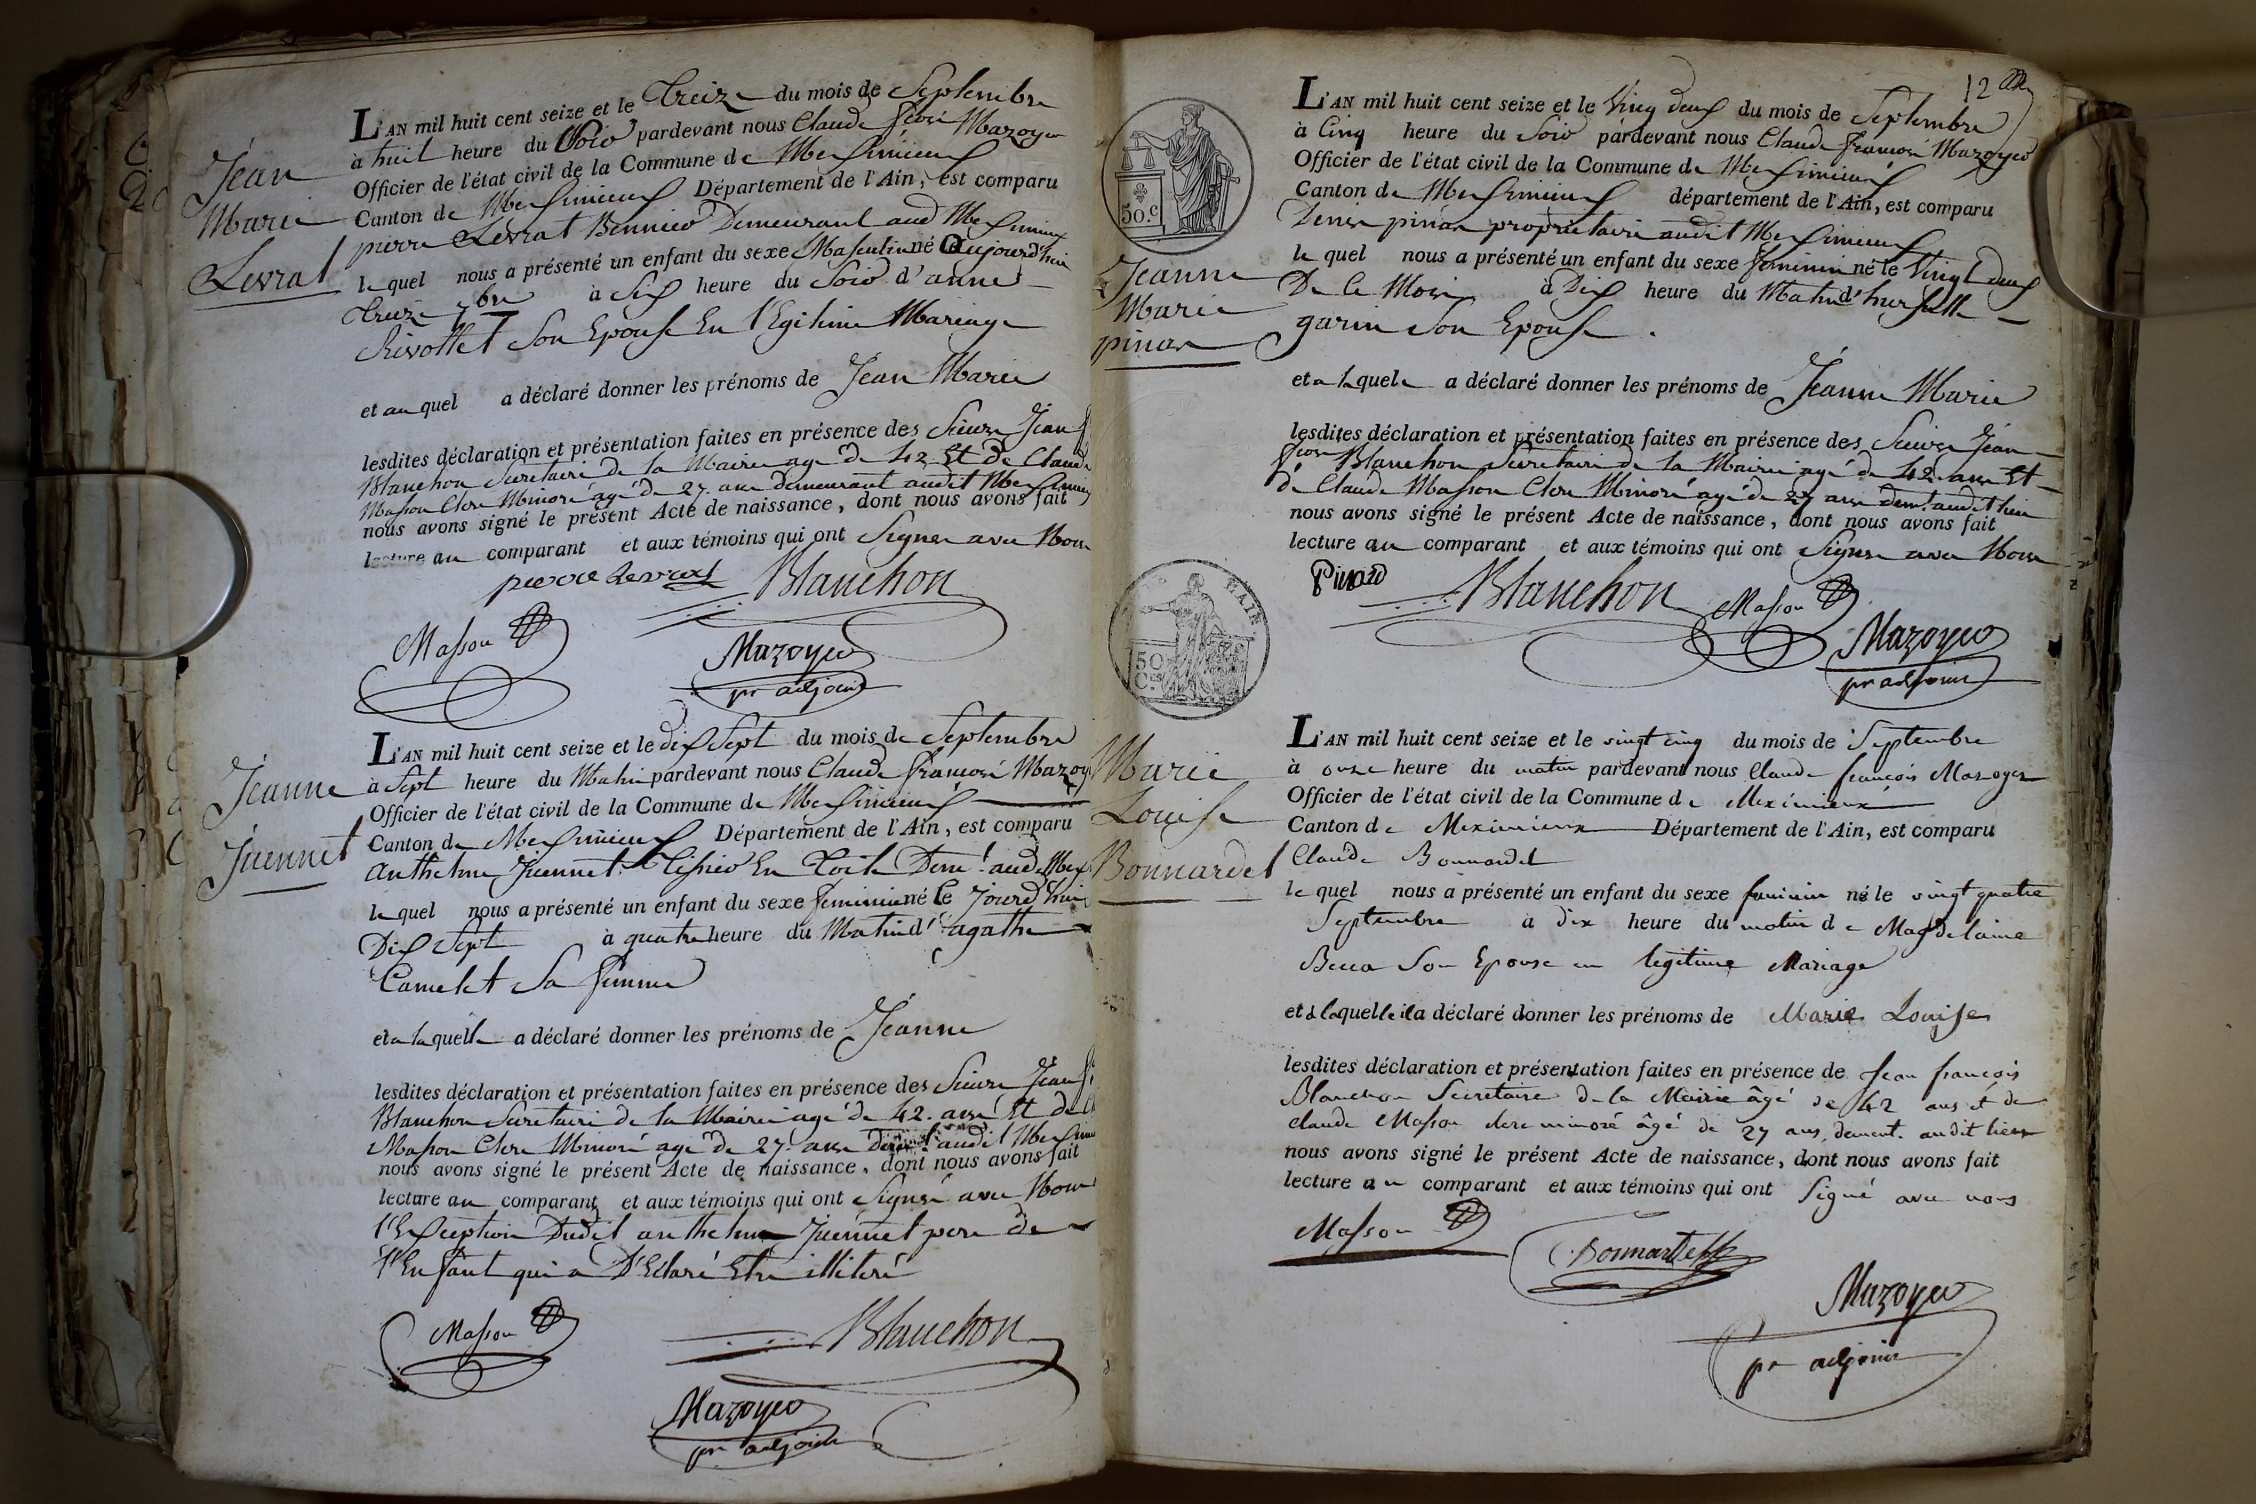 Jean
Marie
Levrat
L'AN mil huit cent seize et le Treize du mois de Septembre
à huit heure du Soir pardevant nous Claude fcois Mazoyer
Officier de l'état civil de la Commune de Meximieux
Canton de Meximieux Département de l'Ain, est comparu
pierre Levrat Demeurant aud Meximieux
le quel nous a présenté un enfant du sexe Masculin né aujourd'hui
Treize 7bre à Six heure du Soir d'anne
Rivollet Son Epouse En l'Egitime Mariage
et au quel a déclaré donner les prénoms de Jean Marie
lesdites déclaration et présentation faites en présence des Sieurs Jean
Blanchon Secretaire de la Mairie agé de 42 Et de Claude
Masson Clerc Minoré agé de 27 ans demeurant audit Meximieux
nous avons signé le présent Acte de naissance, dont nous avons fait
lecture au comparant et aux témoins qui ont Signer avec Nous
pierre Levrat Blanchon
Masson Mazoyer
pr adjoint
Jeanne
Juennet
L'AN mil huit cent seize et le dix Sept du mois de Septembre
à Sept heure du Matin pardevant nous Claude francois Mazoy
Officier de l'état civil de la Commune de Meximieux
Canton de Meximieux Département de l'Ain, est comparu
Anthelme Juennet Tissier En Toile Demt aud Mex
le quel nous a présenté un enfant du sexe feminin né le jourd'hui
Dix Sept à quatre heure du Matin d'agathe
Camelet Sa femme
et a laquelle a déclaré donner les prénoms de Jeanne
lesdites déclaration et présentation faites en présence des Sieurs Jean f
Blanchon Secretaire de la Mairie agé de 42. ans Et de Cl
Masson Clerc Minoré agé de 27. ans demt audit Meximieux
nous avons signé le présent Acte de naissance, dont nous avons fait
lecture au comparant et aux témoins qui ont Signé avec Nous
l'Exception Dudit anthelme Juennet pere de
l'Enfant qui a D'Eclaré Etre illiteré
Masson Blanchon
Mazoyer
pr adjoint
12
50.c
Jeanne
Marie
pinar
L'AN mil huit cent seize et le Vinq deux du mois de Septembre
à Cinq heure du Soir pardevant nous Claude francois Mazoyer
Officier de l'état civil de la Commune de Meximieux
Canton de Meximieux département de l'Ain, est comparu
Denis pinar proprietaire audit Meximieux
le quel nous a présenté un enfant du sexe feminin né le Vingt deux
De Ce Mois à Dix heure du Matin d'
garin Son Epouse.
et a laquele a déclaré donner les prénoms de Jeanne Marie
lesdites déclaration et présentation faites en présence des Sieurs Jean
fcois Blanchon Secretaire de la Mairie agé de 42 ans Et
de Claude Masson Clerc Minoré agé de 27 ans demt audit lieu
nous avons signé le présent Acte de naissance, dont nous avons fait
lecture au comparant et aux témoins qui ont Signer avec Nous
Pinard Blanchon Masson
Mazoyer
pr adjoint
L'AIN
50
Ces
Marie
Louise
Bonnardel
L'AN mil huit cent seize et le vingt cinq du mois de Septembre
à onze heure du matin pardevant nous Claude françois Mazoyer
Officier de l'état civil de la Commune de Meximieux
Canton de Meximieux Département de l'Ain, est comparu
Claude Bonnardel
le quel nous a présenté un enfant du sexe feminin né le vingt quatre
Septembre à dix heure du matin de Magdelaine
Becca Son Epouse en legitime Mariage
et à laquelle il a déclaré donner les prénoms de Marie Louise
lesdites déclaration et présentation faites en présence de Jean françois
Blanchon Secretaire de la Mairie âgé de 42 ans et de
claude Masson clerc minoré âgé de 27 ans, demeut. audit lieu
nous avons signé le présent Acte de naissance, dont nous avons fait
lecture au comparant et aux témoins qui ont Signé avec nous
Masson Bonnardel
Mazoyer
pr adjoint